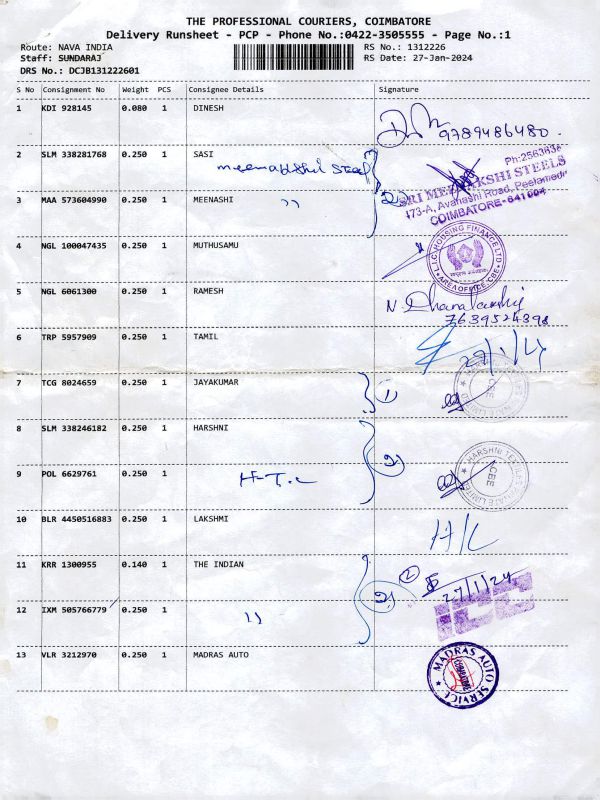 THE PROFESSIONAL COURIERS, COIMBATORE
Delivery Runsheet - PCP - Phone No.:0422-3505555 - Page No.:1
Route: NAVA INDIA RS No.: 1312226
Staff: SUNDARAJ RS Date: 27-Jan-2024
DRS No.: DCJB131222601
S No Consignment No Weight PCS Consignee Details Signature
1 KDI 928145 0.080 1 DINESH
9789486480.
2 SLM 338281768 0.250 1 SASI
Meenakshi Steel
Ph:256363
SRI MEENAKSHI STEELS
173-A, Avanashi Road, Peelamedu
COIMBATORE-641004
3 MAA 573604990 0.250 1 MEENASHI
〃
2
4 NGL 100047435 0.250 1 MUTHUSAMU
L.I.C. HOUSING FINANCE LTD
AREA OFFICE, CBE
5 NGL 6061300 0.250 1 RAMESH
N. Dhanalakshmi
7639524398
6 TRP 5957909 0.250 1 TAMIL
27/1/24
7 TCG 8024659 0.250 1 JAYAKUMAR
1
CBE
8 SLM 338246182 0.250 1 HARSHNI
2
9 POL 6629761 0.250 1
H-T-L
HARSHNI TEXTILES PRIVATE LIMITED
CBE
10 BLR 4450516883 0.250 1 LAKSHMI
11 KRR 1300955 0.140 1 THE INDIAN
2
2
27/1/24
12 IXM 505766779 0.250 1
〃
13 VLR 3212970 0.250 1 MADRAS AUTO
MADRAS AUTO SERVICE
COIMBATORE